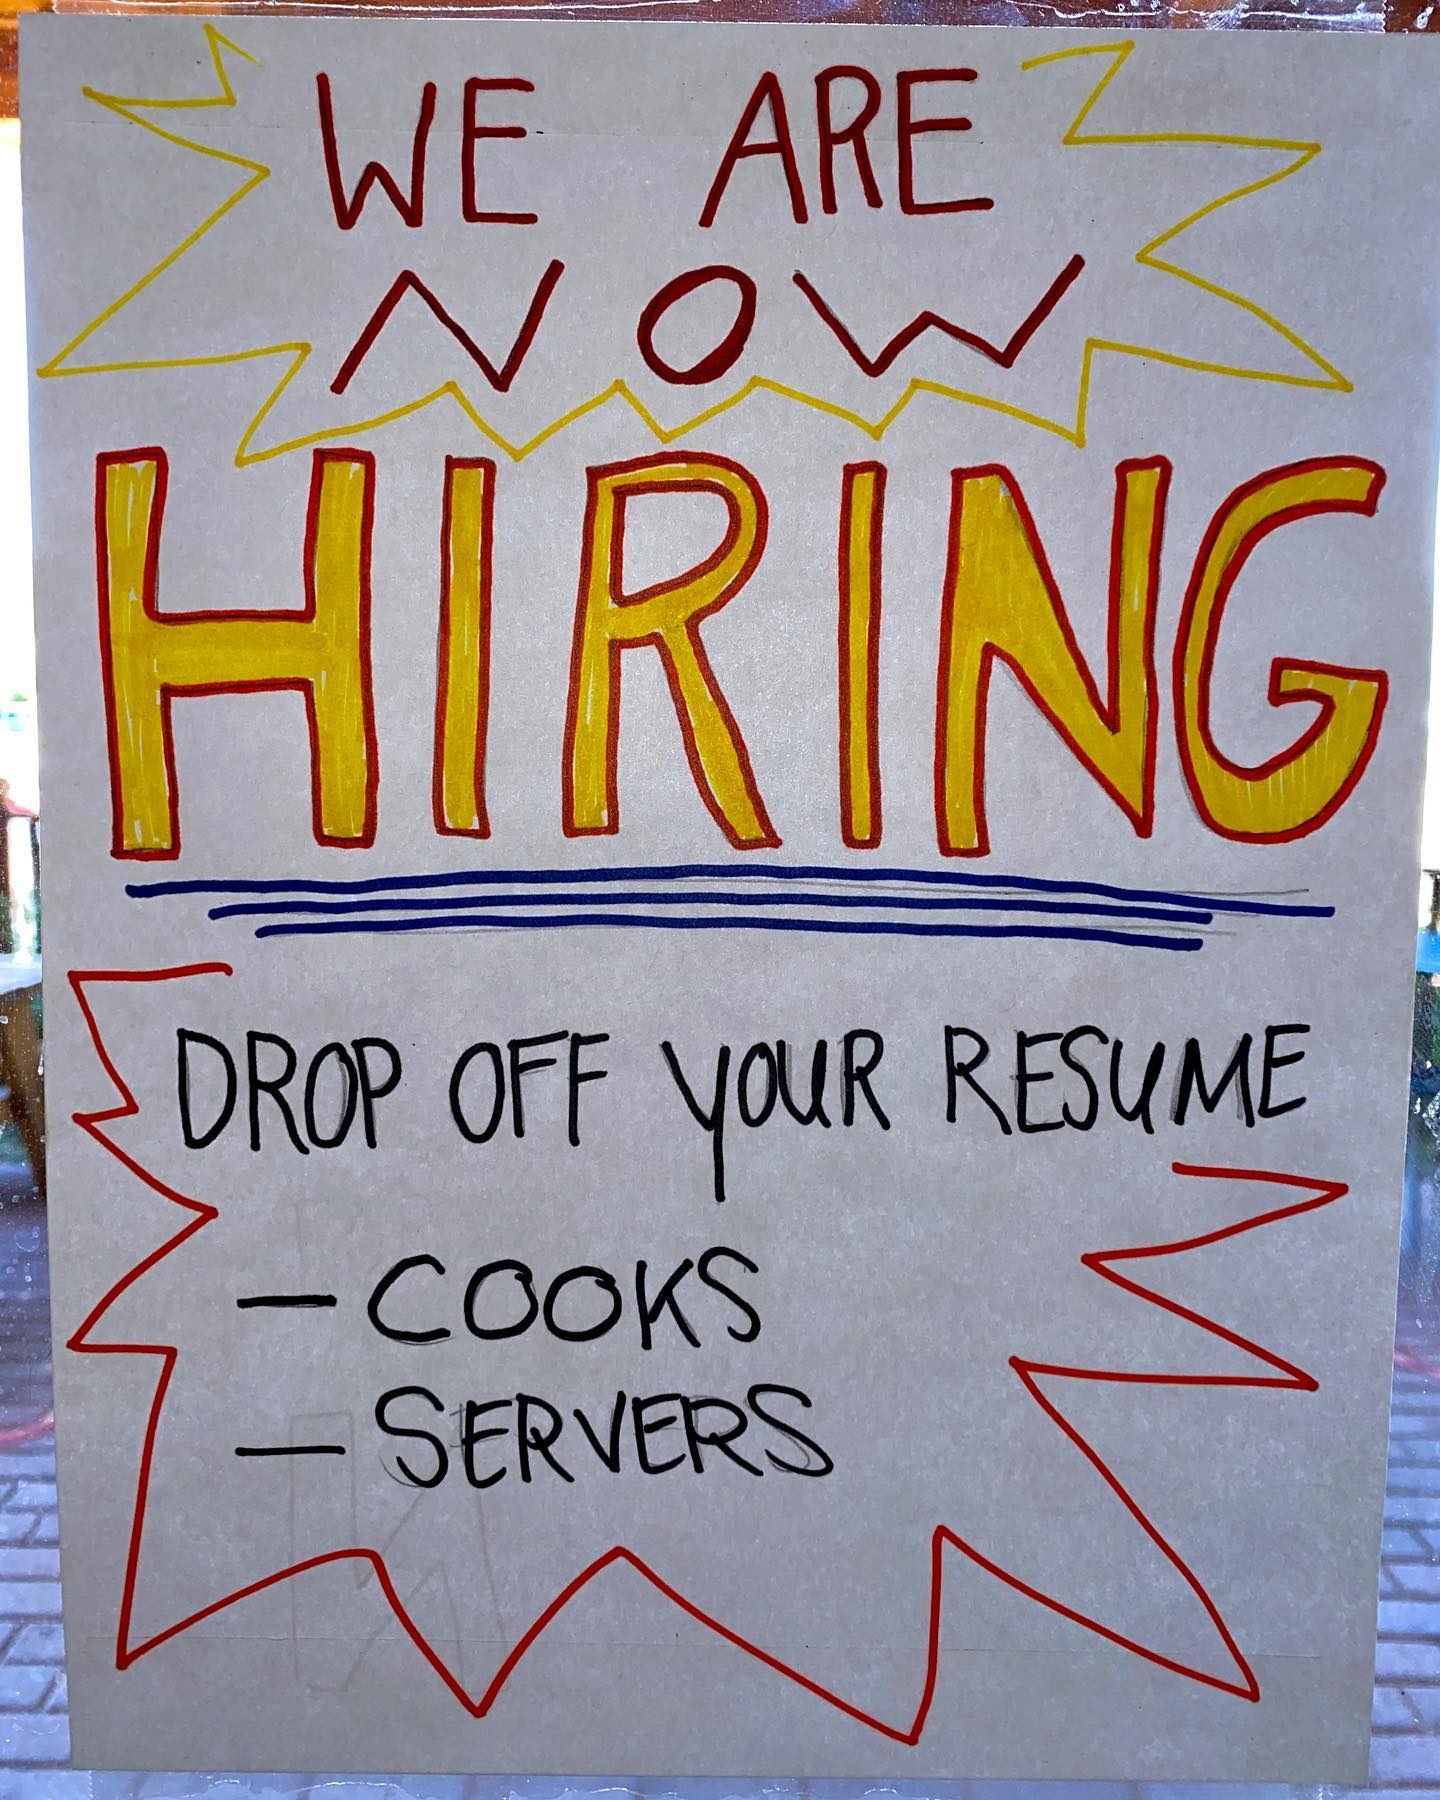 WE ARE
NOW
HIRING
DROP OFF YOUR RESUME
— COOKS
— SERVERS